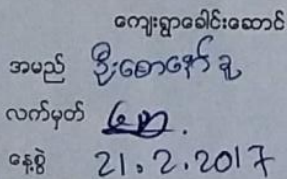 ကျေးရွာခေါင်းဆောင်
အမည် ဦးစောနော်ခူ
လက်မှတ်
နေ့စွဲ 21.2.2017